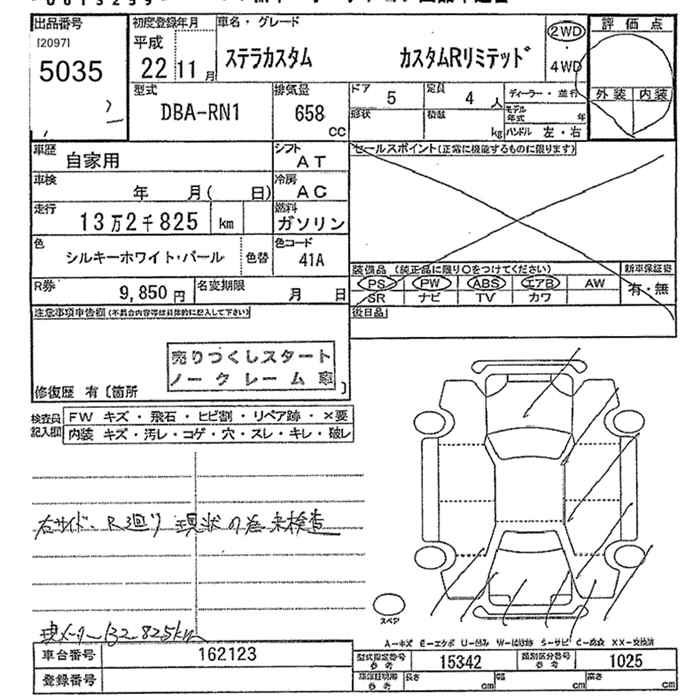 出品番号
[2097]
5035
初度登録年月
平成
22 11 月
車名・グレード
ステラカスタム カスタムRリミテッド
2WD
4WD
評価点
外装 内装
型式
DBA-RN1
排気量
658 cc
ドア
5
定員
4 人
形状
積載
kg
ディーラー・並行
モデル年式 年
ハンドル 左・右
車歴
自家用
シフト
AT
車検
年 月( 日)
冷房
AC
走行
13万2千825 km
燃料
ガソリン
色
シルキーホワイト・パール
色替
色コード
41A
R券
9,850 円
名変期限
月 日
セールスポイント(正常に機能するものに限ります)
装備品 (純正品に限り○をつけてください)
新車保証書
PS PW ABS エアB AW
有・無
SR ナビ TV カワ
後日品
注意事項申告欄(不具合内容等は具体的に記入して下さい)
売りつくしスタート
ノークレーム
修復歴 有 〔箇所 〕
検査員記入欄
FW キズ・飛石・ヒビ割・リペア跡・×要
内装 キズ・汚レ・コゲ・穴・スレ・キレ・破レ
右サイド、R廻り 現状の為 未検査
現メーター132,825km
スペア
A-キズ E-エクボ U-凹み W-補修跡 S-サビ C-腐食 XX-交換済
車台番号
162123
型式指定番号 参考
15342
類別区分番号 参考
1025
登録番号
車検証明書 参考
長さ cm
幅 cm
高さ cm